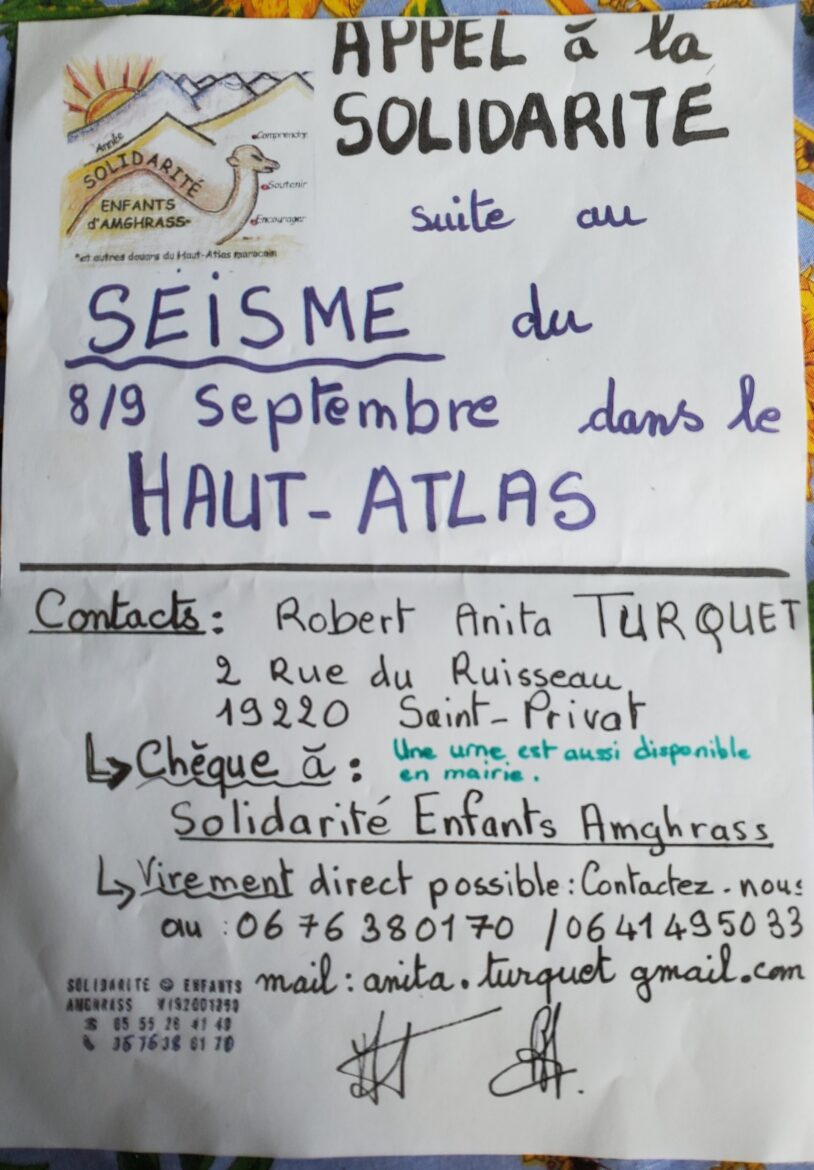 APPEL à la
SOLIDARITÉ
Année
SOLIDARITÉ
ENFANTS
d'AMGHRASS*
Comprendre
Soutenir
Encourager
*et autres douars du Haut-Atlas marocain
suite au
SEISME du
8/9 septembre dans le
HAUT-ATLAS
Contacts : Robert Anita TURQUET
2 Rue du Ruisseau
19220 Saint-Privat
↳ Chèque à :
Une urne est aussi disponible
en mairie.
Solidarité Enfants Amghrass
↳ Virement direct possible : Contactez-nous
au : 06 76 38 01 70 / 06 41 49 50 33
mail : anita.turquet gmail.com
SOLIDARITE ENFANTS
AMGHRASS
05 55 28 41 49